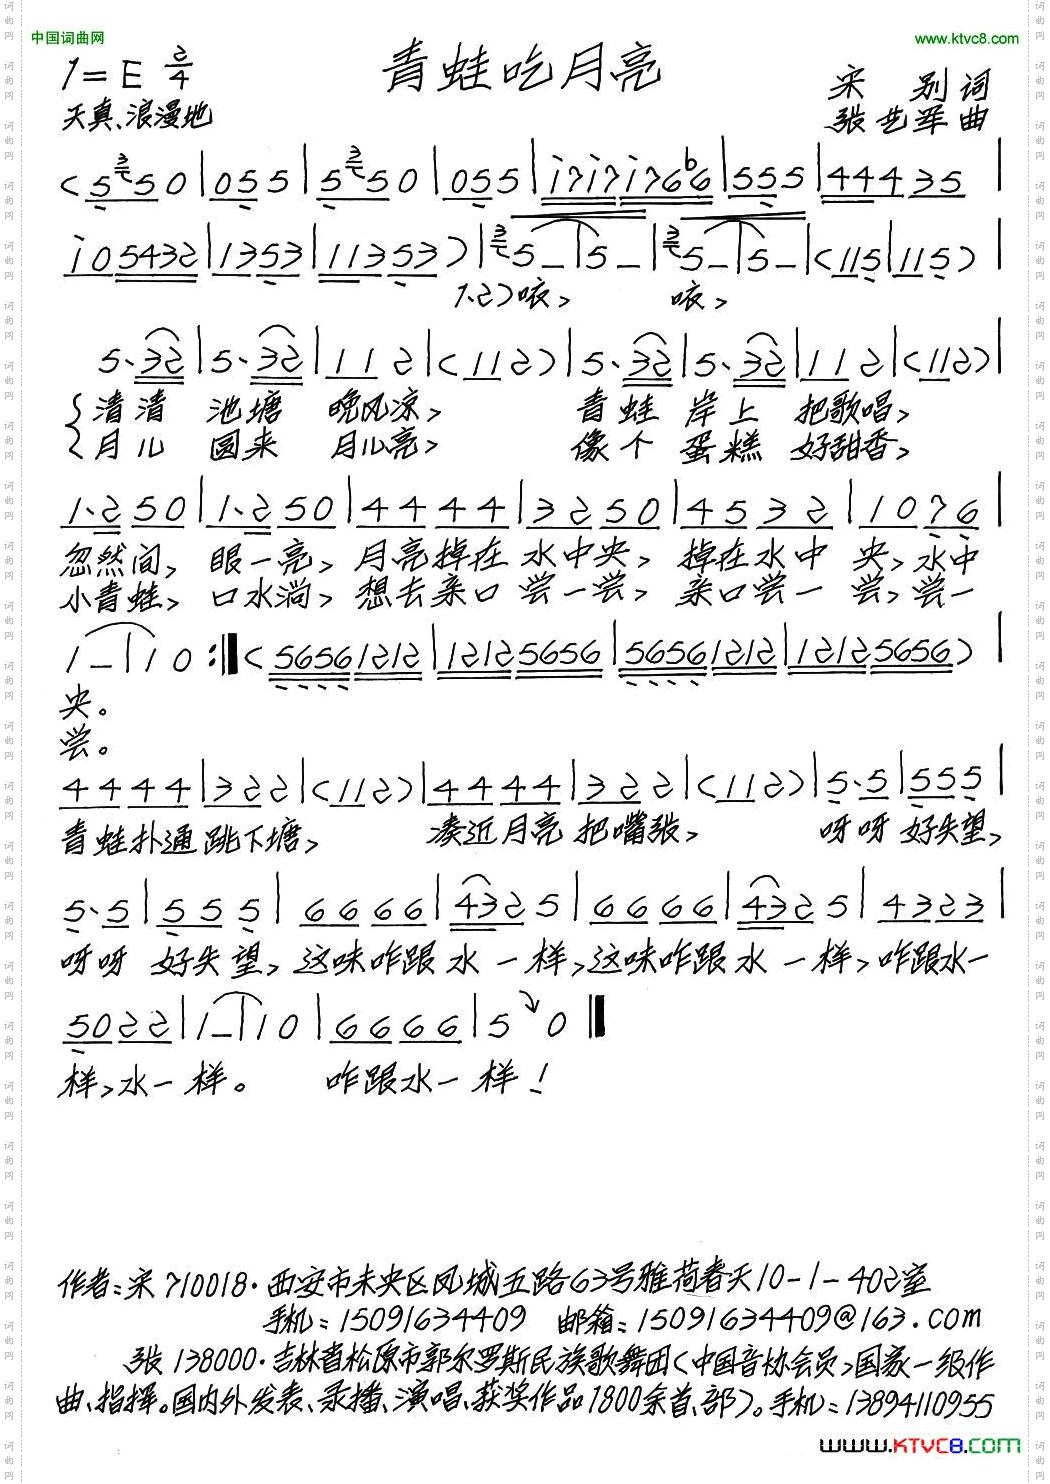 中国词曲网
www.ktvc8.com
青蛙吃月亮
1=E 2/4
宋 别 词
天真、浪漫地
张艺军 曲
< 5 3 5 0 | 0 5 5 | 5 3 5 0 | 0 5 5 | i 7 i 7 i 7 6 b6 | 5 5 5 | 4 4 4 3 5 |
i 0 5 4 3 2 | 1 3 5 3 | 1 1 3 5 3 > | 3 5 – | 5 – | 3 5 – | 5 – | < 1 1 5 | 1 1 5 > |
1、2>咴, 咴,
5、3 2 | 5、3 2 | 1 1 2 | < 1 1 2 > | 5、3 2 | 5、3 2 | 1 1 2 | < 1 1 2 > |
清清 池塘 晚风凉, 青蛙 岸上 把歌唱,
月儿 圆来 月儿亮, 像个 蛋糕 好甜香,
1、2 5 0 | 1、2 5 0 | 4 4 4 4 | 3 2 5 0 | 4 5 3 2 | 1 0 7 6 |
忽然间, 眼一亮, 月亮掉在 水中央, 掉在水中 央, 水中
小青蛙, 口水淌, 想去亲口 尝一尝, 亲口尝一 尝, 尝一
1 – | 1 0 :‖ < 5 6 5 6 1 2 1 2 | 1 2 1 2 5 6 5 6 | 5 6 5 6 1 2 1 2 | 1 2 1 2 5 6 5 6 > |
央。
尝。
4 4 4 4 | 3 2 2 | < 1 1 2 > | 4 4 4 4 | 3 2 2 | < 1 1 2 > | 5、5 | 5 5 5 |
青蛙扑通 跳下塘, 凑近月亮 把嘴张, 呀呀 好失望,
5、5 | 5 5 5 | 6 6 6 6 | 4 3 2 5 | 6 6 6 6 | 4 3 2 5 | 4 3 2 3 |
呀呀 好失望, 这味咋跟 水一样, 这味咋跟 水一样, 咋跟水一
5 0 2 2 | 1 – | 1 0 | 6 6 6 6 | 5 0 ‖
样, 水一样。 咋跟水一 样!
作者:宋 710018·西安市未央区凤城五路63号雅荷春天10-1-402室
手机:15091634409 邮箱:15091634409@163.com
张 138000·吉林省松原市郭尔罗斯民族歌舞团<中国音协会员>国家一级作
曲、指挥。国内外发表、录播、演唱、获奖作品1800余首、部>。手机:13894110955
www.KTVC8.com